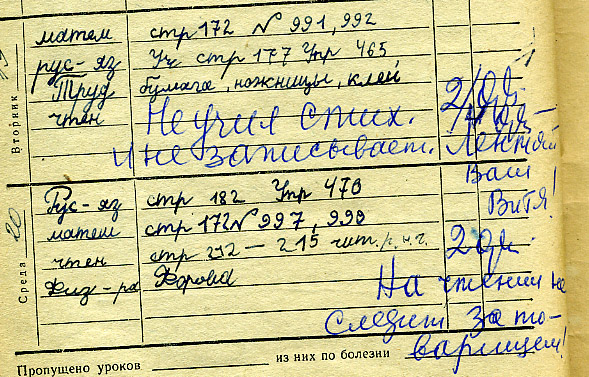 Вторник
матем стр 172 № 991, 992
рус-яз Уч стр 177 Упр 465
Труд бумага, ножницы, клей
чтен Не учил стих.
и не записывает. Лентяй
Ваш
Витя!
Среда 20
Рус-яз стр 182 Упр 470
матем стр 172 № 997, 990
чтен стр 212 – 215 чит.
Физ-ра Форма
На чтении не
следит за то-
варищем!
Пропущено уроков из них по болезни